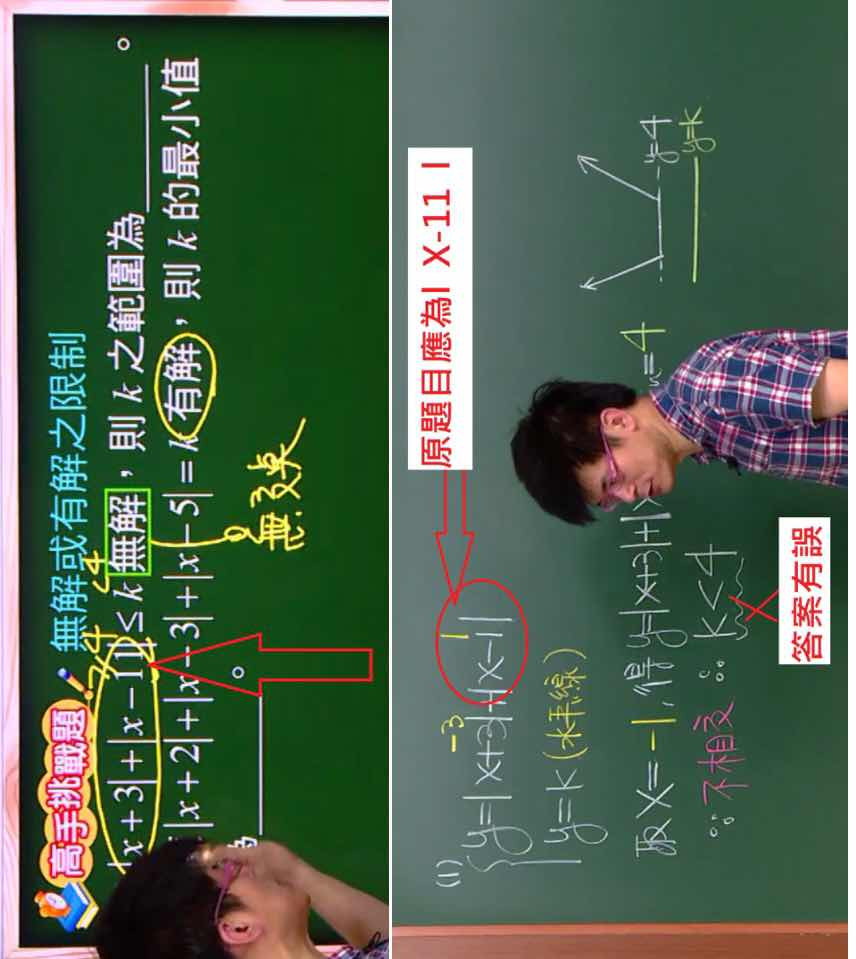 高手挑戰題
無解或有解之限制
4
|x+3|+|x−11|≤k 無解，則 k 之範圍為______。
|x+2|+|x−3|+|x−5|=k 有解，則 k 的最小值
為______。
無交集
原題目應為I X-11 I
-3 1
(1) y=|x+3|+|x-1|
y=k (水平線)
取x=-1,得y=|x+3|+|x =4
∵不相交 ∴k<4
y=4
y=k
答案有誤